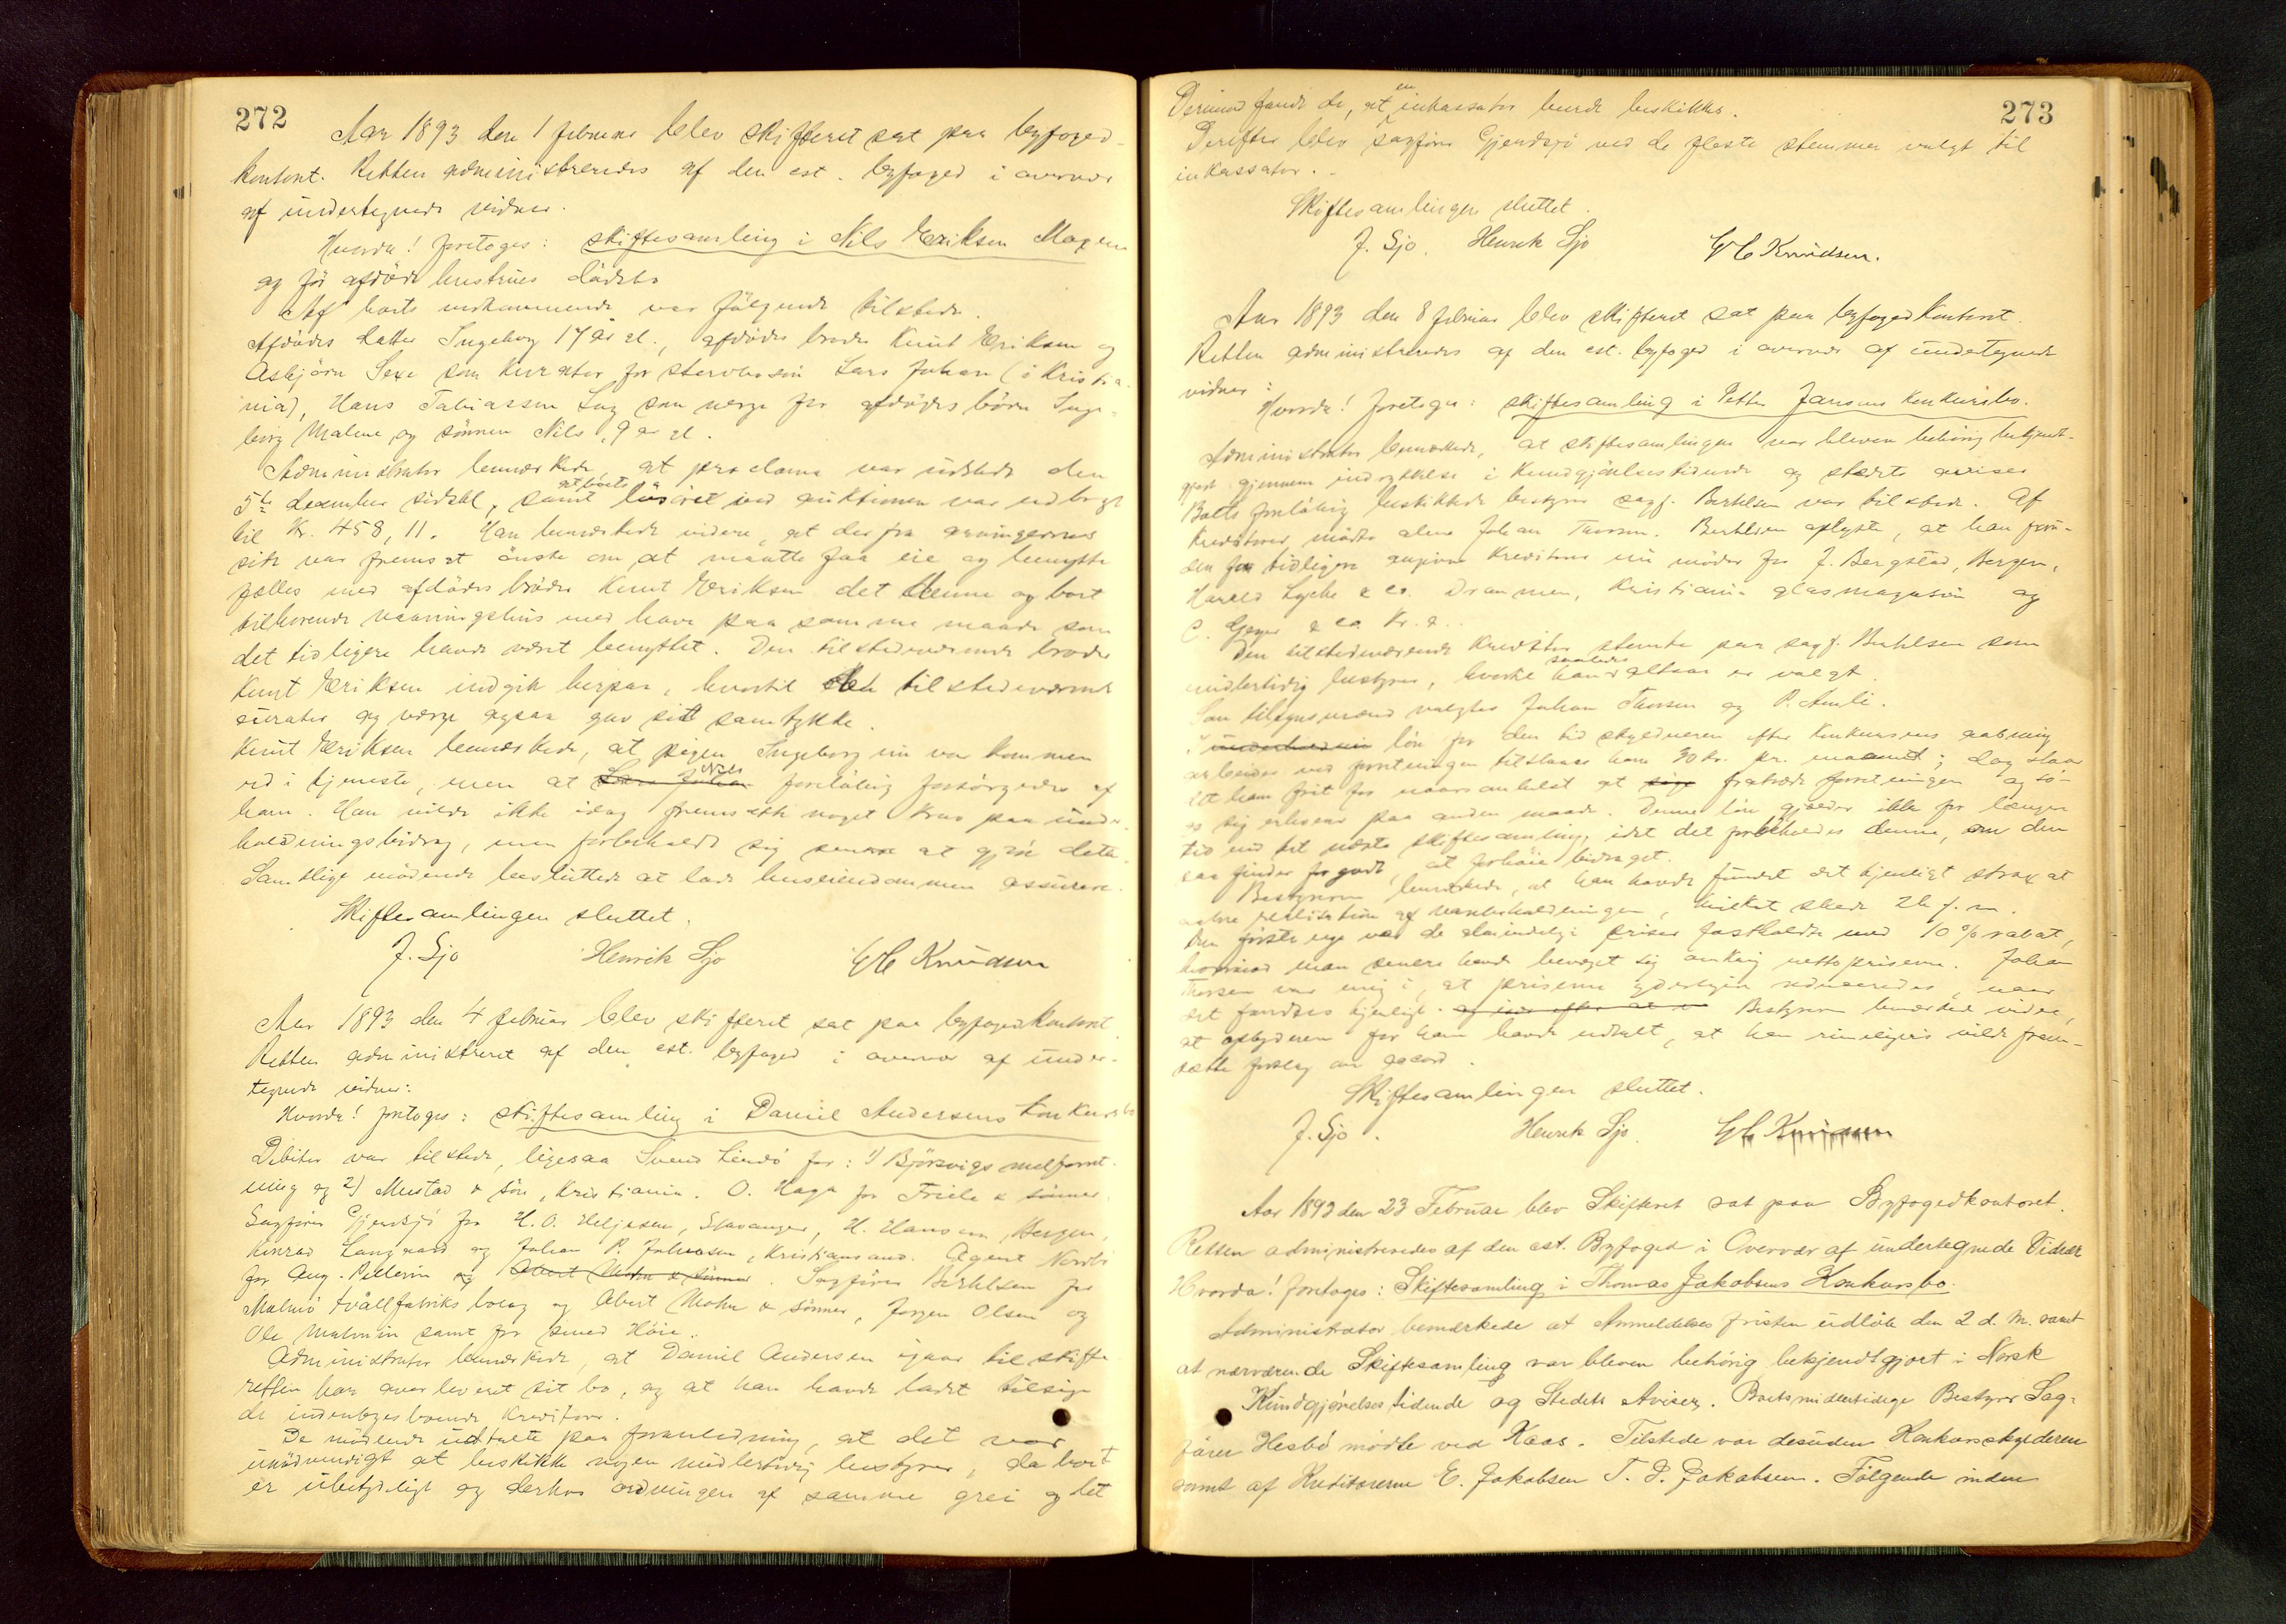 272
Aar 1893 den 1 februar blev skifteret sat paa byfoged-
kontoret. Retten administreredes af den est. byfoged i overvær
af undertegnede vidner.
Hvorda! foretoges: skiftesamling i Nils Eriksen
og for afdøde hustrues dødsbo
Af boets vedkommende var følgende tilstede.
Afdødes datter Ingeborg 17 år gl., afdødes broder Knut Eriksen og
Asbjørn Sexe som kurator for stervbosøn Lars Johan (i Kristia-
nia), Hans Tobiassen Lug som verge for afdødes børn Inge-
borg Malene og sønnen Nils, 9 år gl.
Administrator bemærkede, at proclama var udstedt den
5te december sidstl, samt at boets løsøret ved auktionen var udbragt
til Kr. 458,11. Han bemærkede videre, at der fra arvingernes
side var fremsat ønske om at maatte faa eie og benytte
fælles med afdødes broder Knut Eriksen det denne og boet
tilhørende vaaningshus med have paa samme maade som
det tidligere havde været benyttet. Den tilstedeværende broder
Knut Eriksen indgik herpaa, hvortil de tilstedeværende
curator og verge ogsaa gav sit samtykke.
Knut Eriksen bemærkede, at pigen Ingeborg nu var kommen
ud i tjeneste, men at Lars Johan Nils foreløbig forsørgedes af
ham. Han vilde ikke idag fremsætte noget krav paa under-
holdningsbidrag, men forbeholdt sig senere at gjøre dette.
Samtlige mødende besluttede at lade huseiendommen assurere.
Skiftesamlingen sluttet.
J. Sjo Henrik Sjo C Knudsen
Aar 1893 den 4 februar blev skifteret sat paa byfogedkontoret
Retten administreret af den est. byfoged i overvær af under-
tegnede vidner:
Hvorda! foretoges: skiftesamling i Daniel Andersens konkursbo
Debitor var tilstede, ligesaa Svend Lindø for: 1) Bjørsvigs melforret-
ning og 2) Mustad & søn, Kristiania. O. Haga for Friele & sønner.
Sagfører Gjendsjø for H. O. Heljesen, Stavanger, H. Hansen, Bergen,
Konrad Langaard og Johan P. Johnsen, Kristiansand. Agent Nordbø
for Aug. Pellerin og Abert Mohn & sønner. Sagfører Berthelsen for
Malmø tvålfabriks bolag og Abert Mohn & sønner, Jørgen Olsen og
Ole Malmin samt for smed Høie.
Administrator bemærkede, at Daniel Andersen igaar til skifte-
retten har overleveret sit bo, og at han havde ladet tilsige
de indenbyesboende kreditorer.
De mødende udtalte paa foranledning, at det var
unødvendigt at beskikke nogen midlertidig bestyrer, da boet
er ubetydeligt og derhos ordningen af samme grei og let
273
Derimod fandt de, at en inkassator burde beskikkes.
Derefter blev sagfører Gjendsjø ved de fleste stemmer valgt til
inkassator.
Skiftesamlingen sluttet.
J. Sjo. Henrik Sjo C Knudsen.
Aar 1893 den 8 februar blev skifteret sat paa byfogedkontoret.
Retten administreredes af den est. byfoged i overvær af undertegnede
vidner:
Hvorda! foretoges: skiftesamling i Petter Jansens konkursbo.
Administrator bemærkede, at skiftesamlingen var bleven behørig bekjendt-
gjort gjennem indrykkelse i Kundgjørelsestidende og stedets aviser
Boets foreløbig beskikkede bestyrer sagf. Berthelsen var tilstede. Af
kreditorer mødte alene Johan Thorsen. Berthelsen oplyste, at han foru-
den for tidligere angivne kreditorer nu møder for J. Bergstad, Bergen,
Harald Lyche & co. Drammen, Kristiania glasmagasin og
C. Geyer & co. Kr.a.
Den tilstedeværende kreditor stemte paa sagf. Berthelsen som
midlertidig bestyrer, hvorfor han saaledes altsaa er valgt.
Som tilsynsmænd valgtes Johan Thorsen og P. Amli.
I løn for den tid skyldneren efter konkursens aabning
arbeider ved forretningen tilstaaes ham 30 kr. pr. maaned; dog staar
det ham frit for naarsomhelst at fratræde forretningen og sø-
ge sig erhverv paa anden maade. Denne løn gjælder ikke for længere
tid end til næste skiftesamling, idet det forbeholdes denne, om den
saa finder for godt, at forhøie bidraget.
Bestyreren bemærkede, at han havde fundet det tjenligt strax at
aabne realisation af varebeholdningen, hvilket skede 26 f. m.
Den første uge var de almindelige priser fastholdte med 10 % rabat,
hvorimod man senere havde bevæget sig omkring nettopriserne. Johan
Thorsen var enig i, at priserne yderligere reduceredes, naar
det fandtes tjenligt. Bestyreren bemærkede videre,
at opbyderen for ham havde udtalt, at han rimeligvis vilde frem-
sætte forslag om accord.
Skiftesamlingen sluttet.
J. Sjo. Henrik Sjo. C Knudsen
Aar 1893 den 23 Februar blev Skifteret sat paa Byfogedkontoret.
Retten administreredes af den est. Byfoged i Overvær af undertegnede Vidner
Hvorda! foretoges: Skiftesamling i Thomas Jakobsens Konkursbo.
Administrator bemærkede at Anmeldelses fristen udløb den 2 d. M. samt
at nærværende Skiftesamling var bleven behørig bekjendtgjort i Norsk
Kundgjørelsestidende og Stedets Aviser. Boets midlertidige Bestyrer Sag-
fører Hesbø mødte ved Kaas. Tilstede var desuden Konkursskyldneren
samt af Kreditorerne E. Jakobsen T. D. Jakobsen. Følgende inden